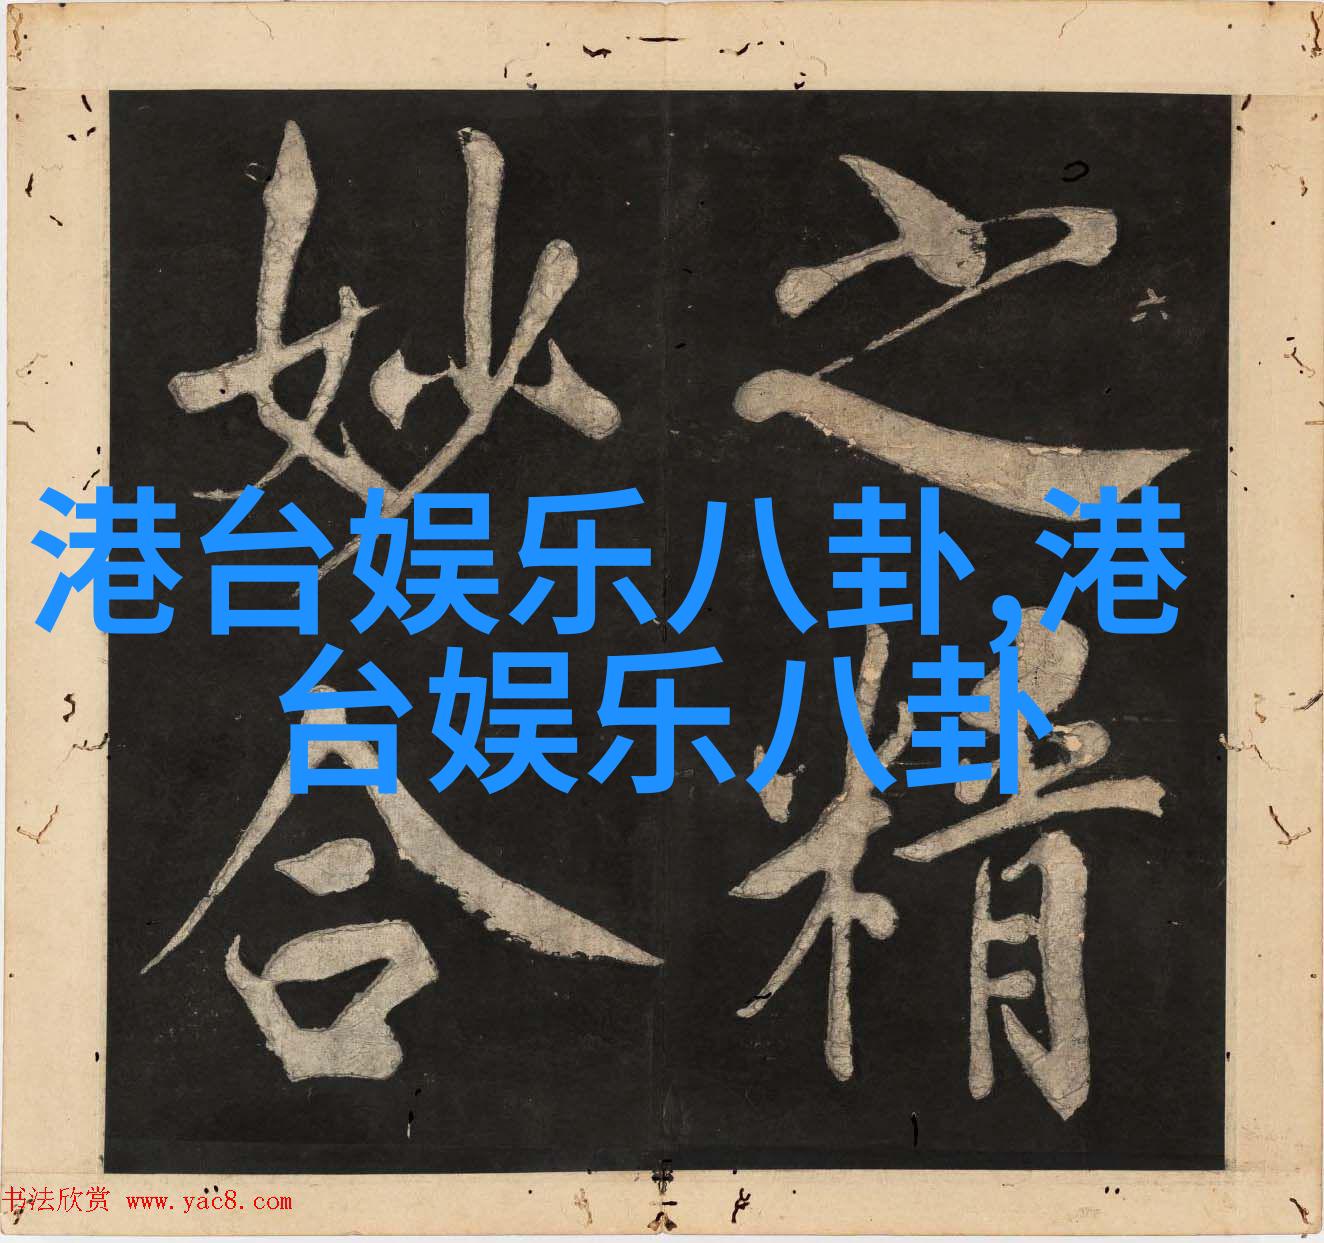 之精
妙合
六
港台娱乐八卦,港
台娱乐八卦
书法欣赏 www.yac8.com